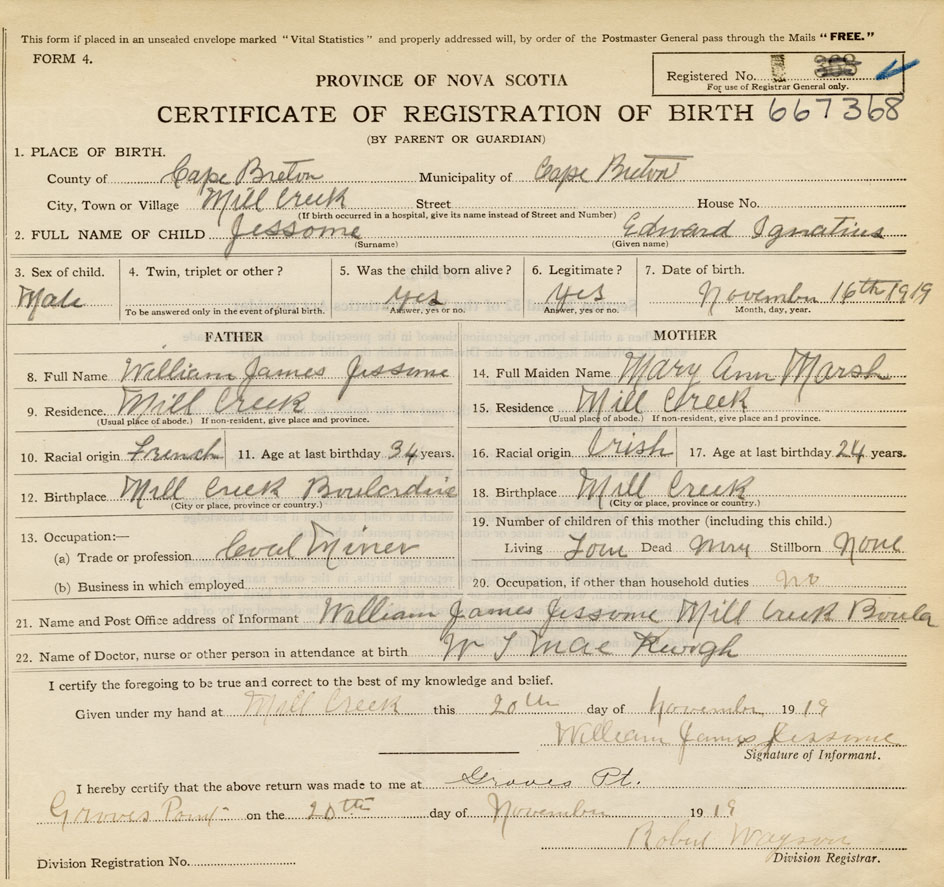 This form if placed in an unsealed envelope marked "Vital Statistics" and properly addressed will, by order of the Postmaster General pass through the Mails "FREE."
FORM 4.
Registered No.
For use of Registrar General only.
PROVINCE OF NOVA SCOTIA
CERTIFICATE OF REGISTRATION OF BIRTH 667368
(BY PARENT OR GUARDIAN)
1. PLACE OF BIRTH.
County of Cape Breton Municipality of Cape Breton
City, Town or Village Mill Creek Street House No.
(If birth occurred in a hospital, give its name instead of Street and Number)
2. FULL NAME OF CHILD Jessome Edward Ignatius
(Surname) (Given name)
3. Sex of child. 4. Twin, triplet or other? 5. Was the child born alive? 6. Legitimate? 7. Date of birth.
Male yes yes November 16th 1919
To be answered only in the event of plural birth. Answer, yes or no. Answer, yes or no. Month, day, year.
FATHER MOTHER
8. Full Name William James Jessome 14. Full Maiden Name Mary Ann Marsh
9. Residence. Mill Creek 15. Residence Mill Creek
(Usual place of abode.) If non-resident, give place and province. (Usual place of abode.) If non-resident, give place and province.
10. Racial origin French 11. Age at last birthday 34 years. 16. Racial origin Irish 17. Age at last birthday 24 years.
12. Birthplace Mill Creek Boulardrie 18. Birthplace Mill Creek
(City or place, province or country.) (City or place, province or country.)
13. Occupation:— 19. Number of children of this mother (including this child.)
(a) Trade or profession Coal Miner Living Four Dead Stillborn None
(b) Business in which employed 20. Occupation, if other than household duties no
21. Name and Post Office address of Informant William James Jessome Mill Creek Boula
22. Name of Doctor, nurse or other person in attendance at birth W J Mac Keough
I certify the foregoing to be true and correct to the best of my knowledge and belief.
Given under my hand at Mill Creek this 20th day of November 1919
William James Jessome
Signature of Informant.
I hereby certify that the above return was made to me at Groves Pt.
Groves Point on the 20th day of November 1919
Robert
Division Registration No. Division Registrar.